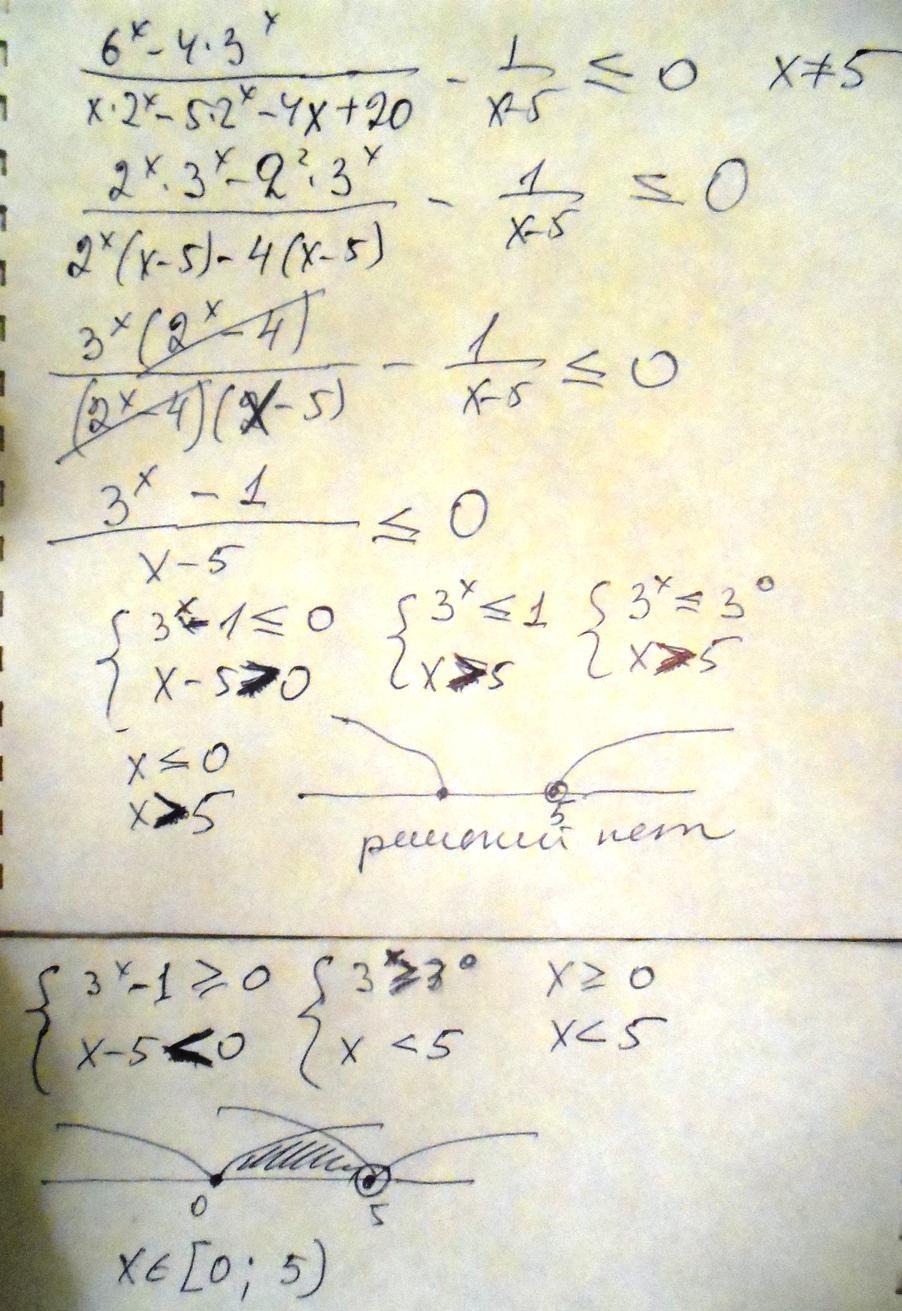 6ˣ - 4·3ˣ / x·2ˣ - 5·2ˣ - 4x + 20 - 1 / x-5 ≤ 0 x ≠ 5
2ˣ·3ˣ - 2²·3ˣ / 2ˣ(x-5) - 4(x-5) - 1 / x-5 ≤ 0
3ˣ(2ˣ - 4) / (2ˣ - 4)(x - 5) - 1 / x-5 ≤ 0
3ˣ - 1 / x - 5 ≤ 0
{ 3ˣ - 1 ≤ 0 { 3ˣ ≤ 1 { 3ˣ ≤ 3⁰
x - 5 > 0 x > 5 x > 5
x ≤ 0
x > 5
5
решений нет
{ 3ˣ - 1 ≥ 0 { 3ˣ ≥ 3⁰ x ≥ 0
x - 5 < 0 x < 5 x < 5
0 5
x ∈ [0; 5)